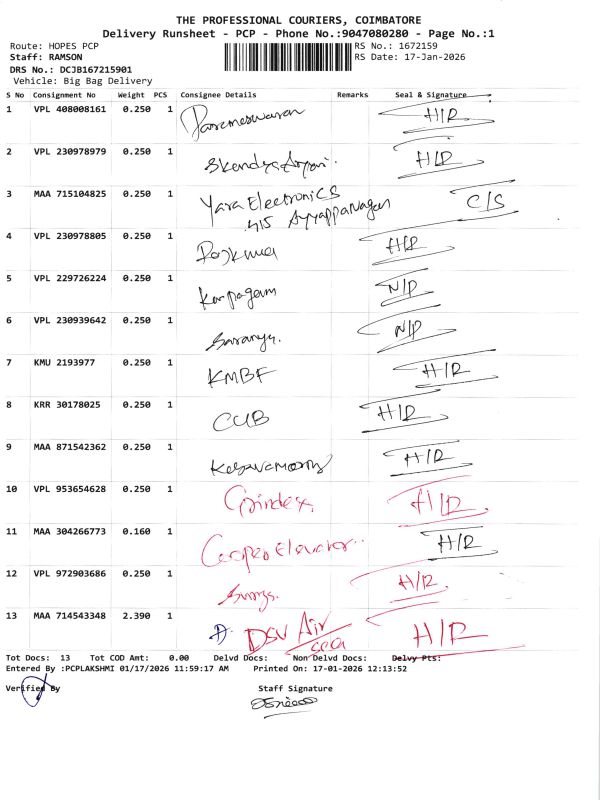 THE PROFESSIONAL COURIERS, COIMBATORE
Delivery Runsheet - PCP - Phone No.:9047080280 - Page No.:1
Route: HOPES PCP
RS No.: 1672159
Staff: RAMSON
RS Date: 17-Jan-2026
DRS No.: DCJB167215901
Vehicle: Big Bag Delivery
S No Consignment No Weight PCS Consignee Details Remarks Seal & Signature
1 VPL 408008161 0.250 1 Parameswaran H/R
2 VPL 230978979 0.250 1 H/D
3 MAA 715104825 0.250 1 Yara Electronics C/S
415 Ayyappa Nagar
4 VPL 230978805 0.250 1 H/R
5 VPL 229726224 0.250 1 Karpagam N/D
6 VPL 230939642 0.250 1 Saranya. N/D
7 KMU 2193977 0.250 1 KMBF H/R
8 KRR 30178025 0.250 1 CUB H/R
9 MAA 871542362 0.250 1 Kesavamoorthy H/R
10 VPL 953654628 0.250 1 Grindex. H/R
11 MAA 304266773 0.160 1 Cooper Elevator.. H/R
12 VPL 972903686 0.250 1 Surya. H/R.
13 MAA 714543348 2.390 1 DSV Air H/R
sea
Tot Docs: 13 Tot COD Amt: 0.00 Delvd Docs: Non Delvd Docs: Delvy Pts:
Entered By :PCPLAKSHMI 01/17/2026 11:59:17 AM Printed On: 17-01-2026 12:13:52
Verified By Staff Signature